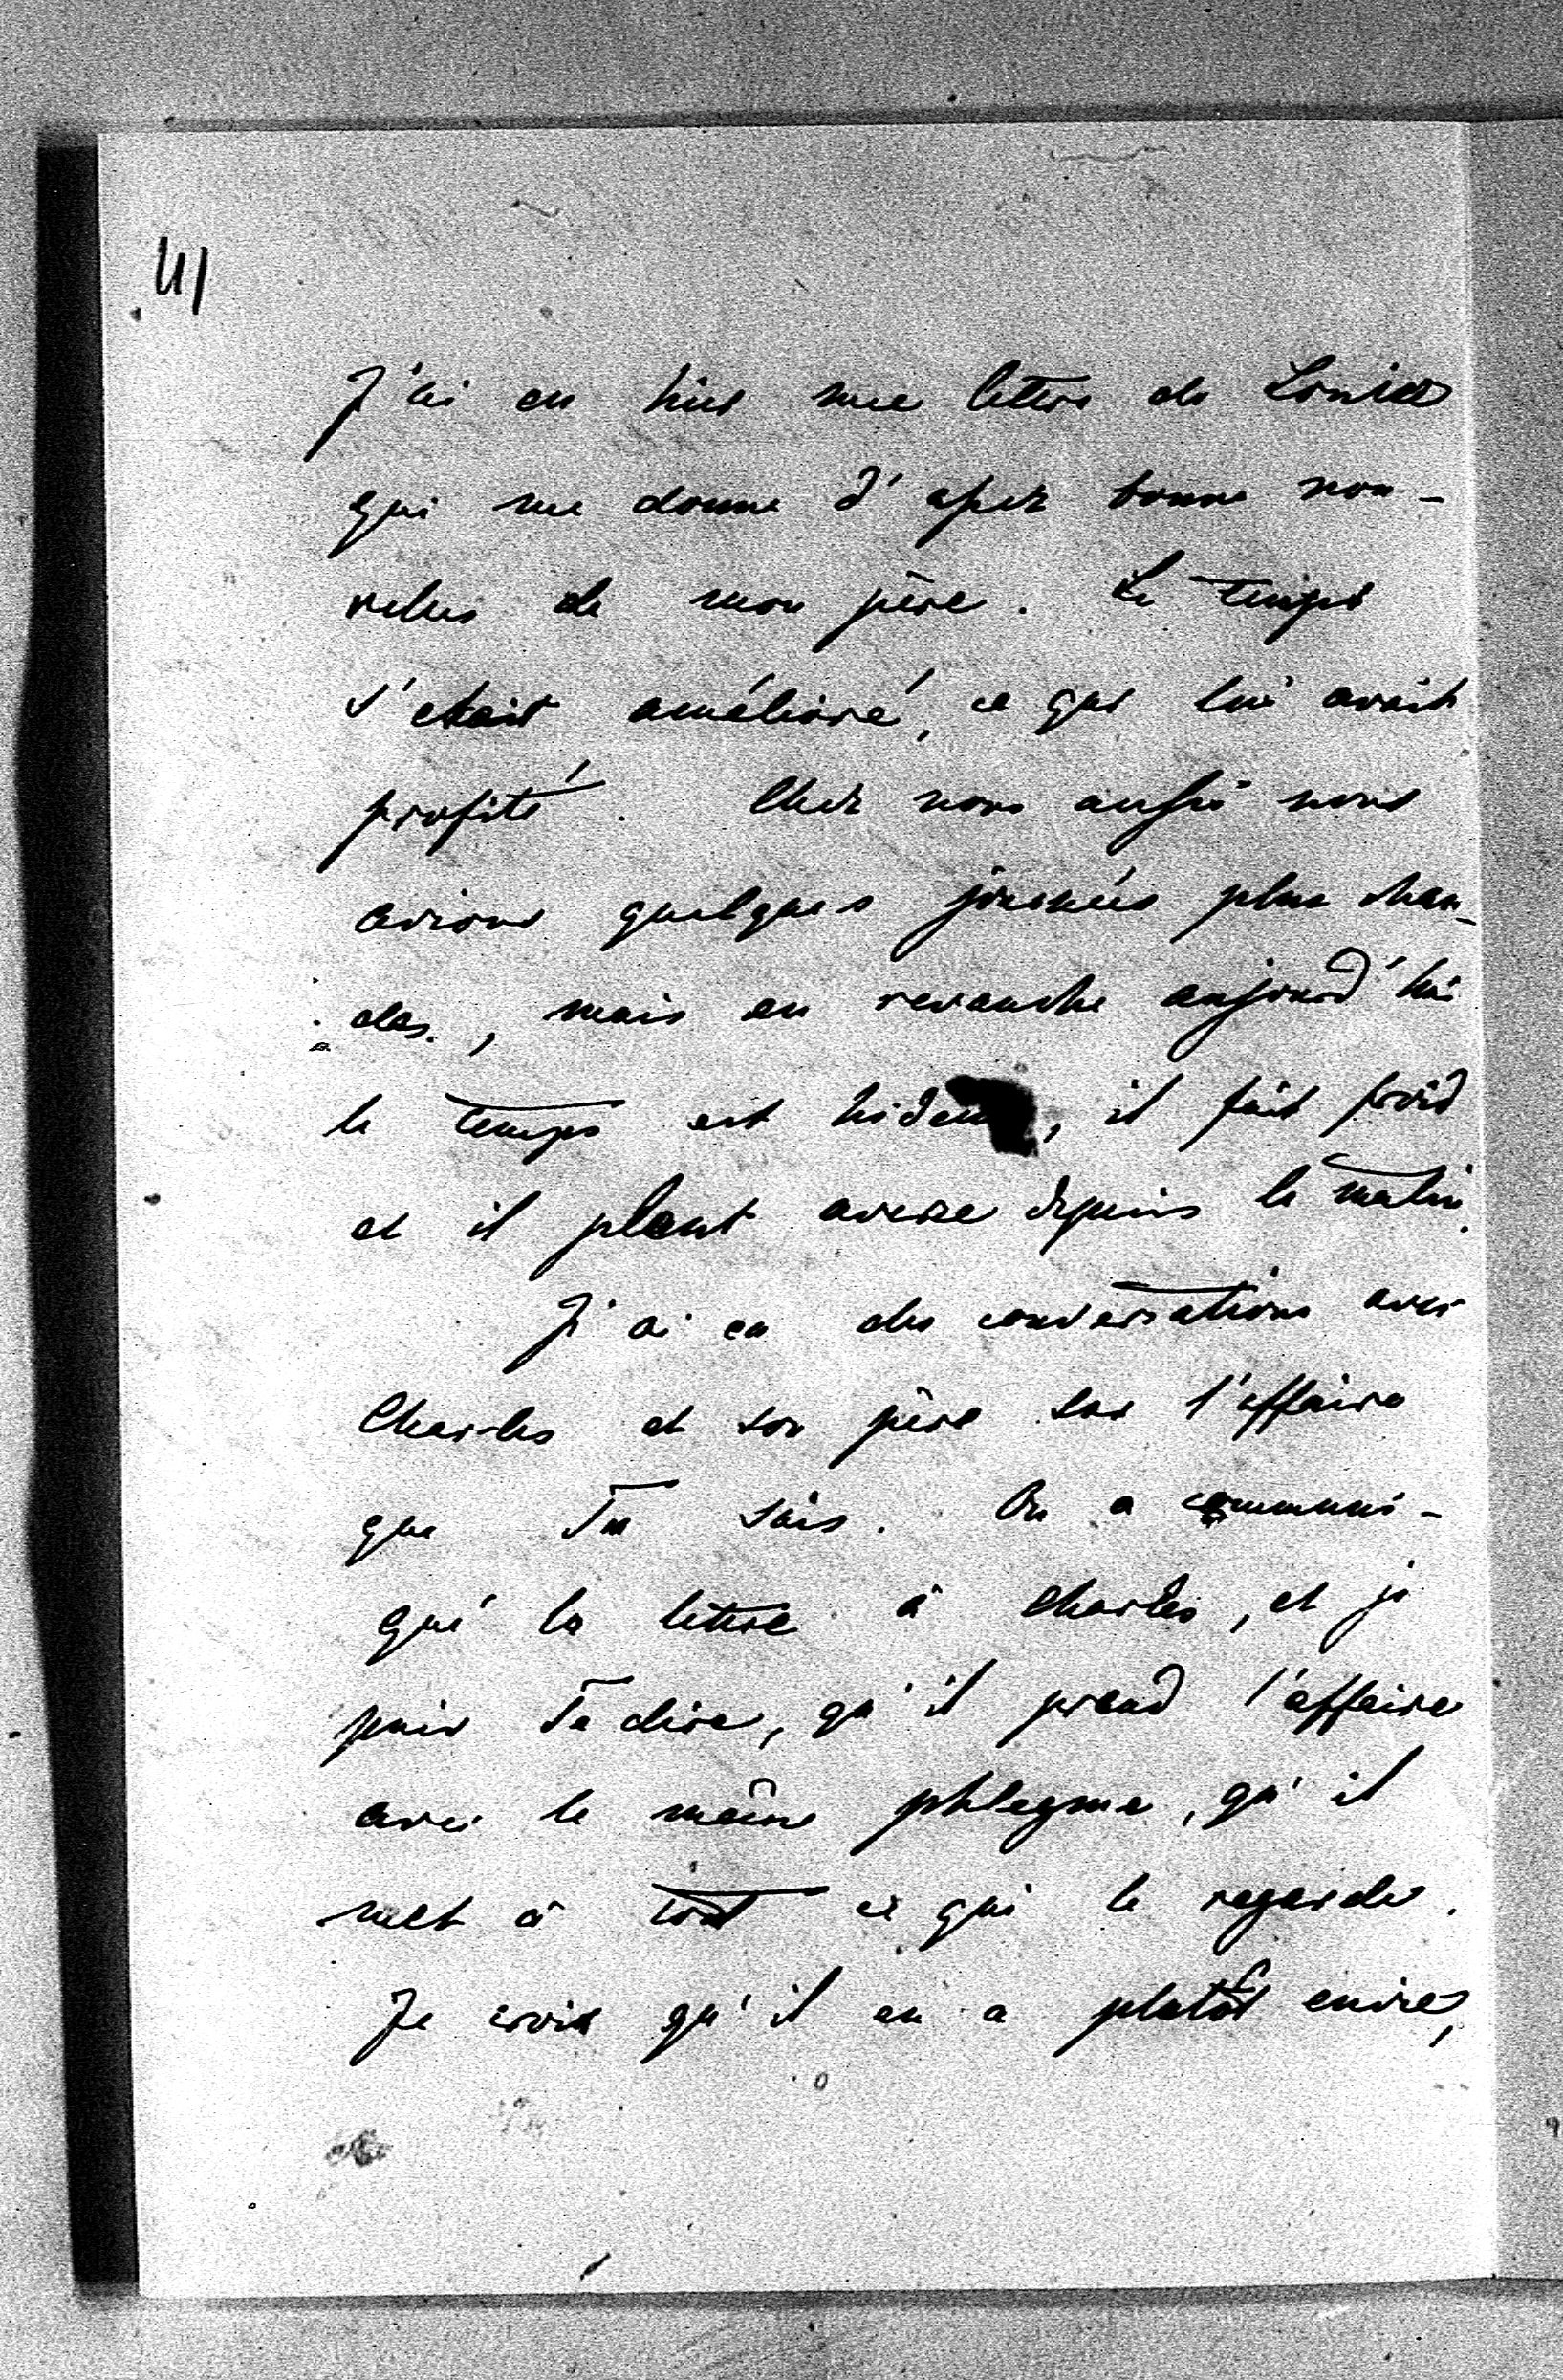 41
J'ai eu hier une lettre de Louise
qui me donne d'assez bonne nou-
velles de mon père. Le temps
s'était amélioré, ce qui lui avait
profité. Chez nous aussi nous
avions quelques journées plus chau-
des., mais en revanche aujourd'hui
le temps est hideux, il fait froid
et il pleut averse depuis le matin.
J'ai eu des conversations avec
Charles et son père sur l'affaire
que Tu sais. On a communi-
qué la lettre à Charles, et je
puis Te dire, qu'il prend l'affaire
avec le même phlegme, qu'il
met à tout ce qui le regarde.
Je crois qu'il en a plutôt envie,